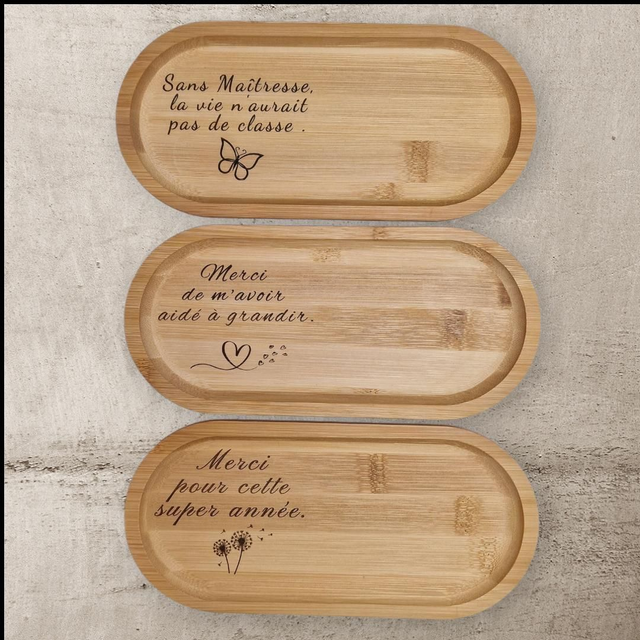 Sans Maîtresse,
la vie n'aurait
pas de classe .
Merci
de m'avoir
aidé à grandir.
Merci
pour cette
super année.